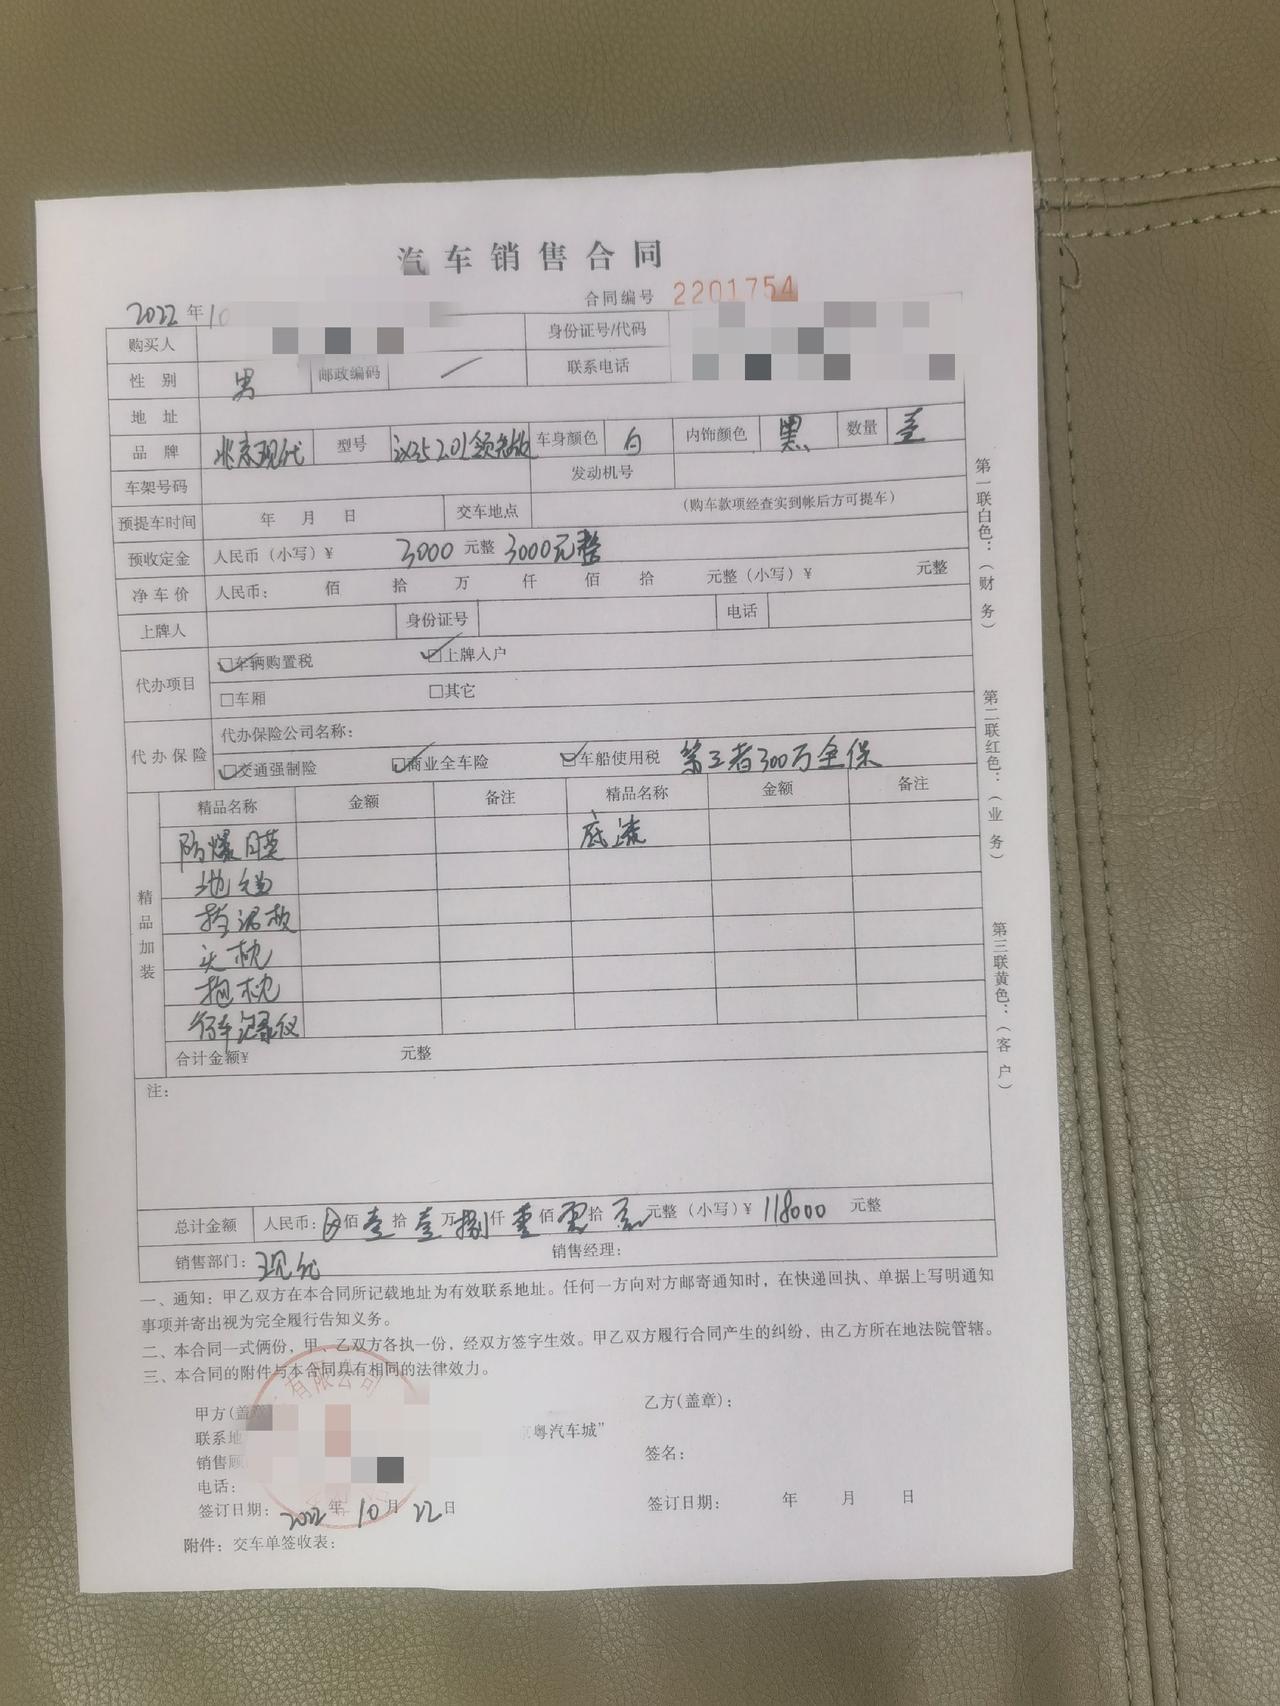 汽车销售合同
合同编号 2201754
2022年10
购买人 身份证号/代码
性别 男 邮政编码 / 联系电话
地址
品牌 北京现代 型号 ix35 2.0L领先版 车身颜色 白 内饰颜色 黑 数量 壹
车架号码 发动机号
预提车时间 年 月 日 交车地点 (购车款项经查实到帐后方可提车)
预收定金 人民币(小写)¥ 3000 元整 3000元整
净车价 人民币: 佰 拾 万 仟 佰 拾 元整(小写)¥ 元整
上牌人 身份证号 电话
代办项目 ☑车辆购置税 ☑上牌入户
□车厢 □其它
代办保险 代办保险公司名称:
☑交通强制险 ☑商业全车险 ☑车船使用税 第三者300万全保
精品加装
精品名称 金额 备注 精品名称 金额 备注
防爆膜 底漆
地毯
挡泥板
头枕
抱枕
行车记录仪
合计金额¥ 元整
注:
总计金额 人民币: 佰壹拾壹万捌仟零佰零拾零元整(小写)¥ 118000 元整
销售部门: 现代 销售经理:
一、通知:甲乙双方在本合同所记载地址为有效联系地址。任何一方向对方邮寄通知时,在快递回执、单据上写明通知
事项并寄出视为完全履行告知义务。
二、本合同一式俩份,甲、乙双方各执一份,经双方签字生效。甲乙双方履行合同产生的纠纷,由乙方所在地法院管辖。
三、本合同的附件与本合同具有相同的法律效力。
有限公司
甲方(盖章 乙方(盖章):
联系地 粤汽车城”
销售顾 签名:
电话:
签订日期: 2022年10月22日 签订日期: 年 月 日
附件:交车单签收表:
第一联白色:(财务)
第二联红色:(业务)
第三联黄色:(客户)